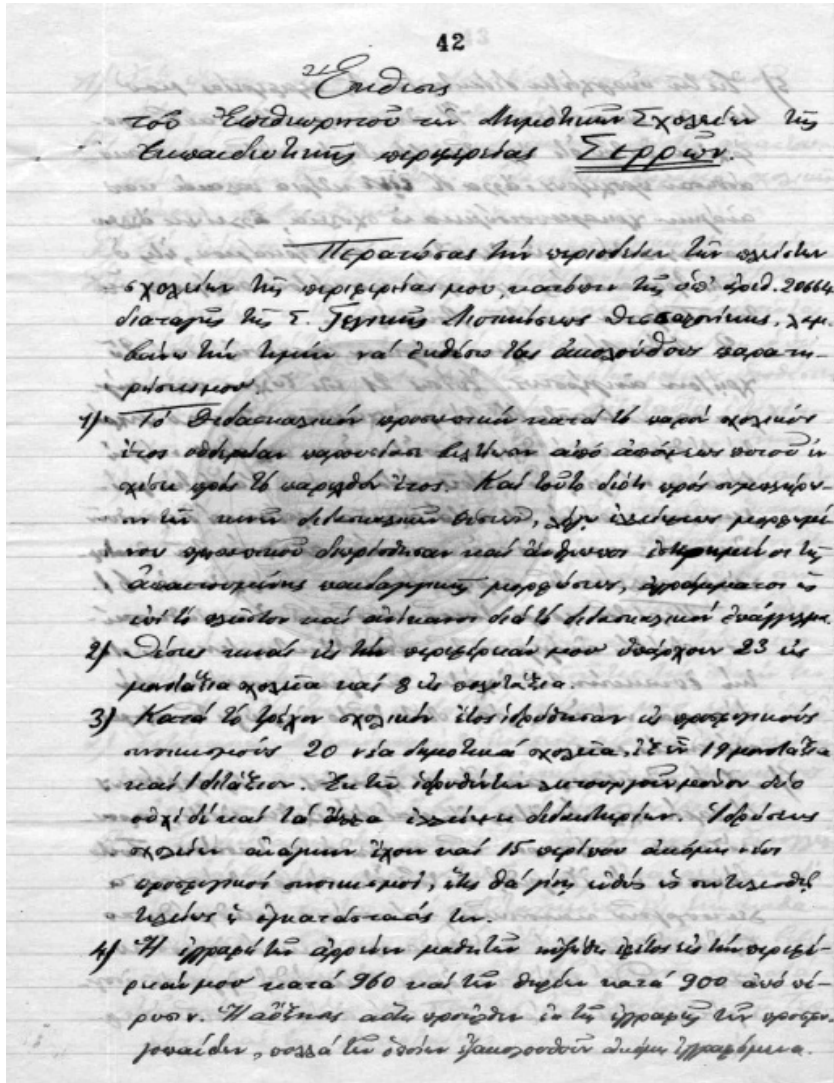 42
Ἔκθεσις
τοῦ Ἐπιθεωρητοῦ τῶν Δημοτικῶν Σχολείων τῆς
Ἐκπαιδευτικῆς περιφερείας Σερρῶν.
Περατώσας τὴν περιοδείαν τῶν πλείστων
σχολείων τῆς περιφερείας μου, κατόπιν τῆς ὑπ' ἀριθ. 20664
διαταγῆς τῆς Σ. Γενικῆς Διοικήσεως Θεσσαλονίκης, λαμ-
βάνω τὴν τιμὴν νὰ ἐκθέσω τὰς ἀκολούθους παρατη-
ρήσεις μου.
1) Τὸ διδασκαλικὸν προσωπικὸν κατὰ τὸ παρὸν σχολικὸν
ἔτος οὐδεμίαν παρουσίασε βελτίωσιν ἀπὸ ἀπόψεως ποσοῦ ἐν
σχέσει πρὸς τὸ παρελθὸν ἔτος. Καὶ τοῦτο διότι πρὸς συμπλήρω-
σιν τῶν κενῶν διδασκαλικῶν θέσεων, λόγῳ ἐλλείψεως μορφωμέ
νου προσωπικοῦ διωρίσθησαν καὶ ἄνθρωποι ἐστερημένοι τῆς
ἀπαιτουμένης παιδαγωγικῆς μορφώσεως, ἀγράμματοι ὡς
ἐπὶ τὸ πλεῖστον καὶ ἀνίκανοι διὰ τὸ διδασκαλικὸν ἐπάγγελμα.
2) Θέσεις κεναὶ εἰς τὴν περιφέρειάν μου ὑπάρχουν 23 εἰς
μονοτάξια σχολεῖα καὶ 8 εἰς πολυτάξια.
3) Κατὰ τὸ τρέχον σχολικὸν ἔτος ἱδρύθησαν εἰς προσφυγικοὺς
συνοικισμοὺς 20 νέα δημοτικὰ σχολεῖα, ἐξ ὧν 19 μονοτάξια
καὶ 1 διτάξιον. Ἐκ τῶν ἱδρυθέντων λειτουργοῦν μόνον δύο
οὐχὶ δὲ καὶ τὰ ἄλλα ἐλλείψει διδακτηρίων. Ἱδρύσεως
σχολείων ἀνάγκην ἔχουν καὶ 15 περίπου ἀκόμη νέοι
προσφυγικοὶ συνοικισμοί, ἥτις θὰ γίνῃ εὐθὺς ὡς συντελεσθῇ
τελείως ἡ ἐγκατάστασίς των.
4) Ἡ ἐγγραφὴ τῶν ἀρρένων μαθητῶν ηὐξήθη ἐφέτος εἰς τὴν περιφέ-
ρειάν μου κατὰ 960 καὶ τῶν θηλέων κατὰ 900 ἀπὸ πέ-
ρυσιν. Ἡ αὔξησις αὕτη προῆλθεν ἐκ τῆς ἐγγραφῆς τῶν προσφυ-
γοπαίδων, πολλὰ τῶν ὁποίων ἐξακολουθοῦν ἀκόμη ἐγγραφόμενα.